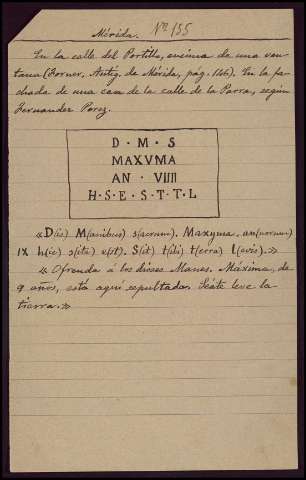 Mérida. Nº 155
En la calle del Portillo, encima de una ven-
tana (Forner, Antig. de Mérida, pág. 146). En la fa-
chada de una casa de la calle de la Parra, según
Fernandez Perez.
D · M · S
MAXVMA
AN · VIIII
H · S · E · S · T · T · L
«D(is) M(anibus) s(acrum). Maxuma. an(norum)
IX h(ic) s(ita) e(st). S(it) t(ibi) t(erra) l(evis).»
«Ofrenda á los dioses Manes. Máxima, de
9 años, está aquí sepultada. Séate leve la
tierra.»